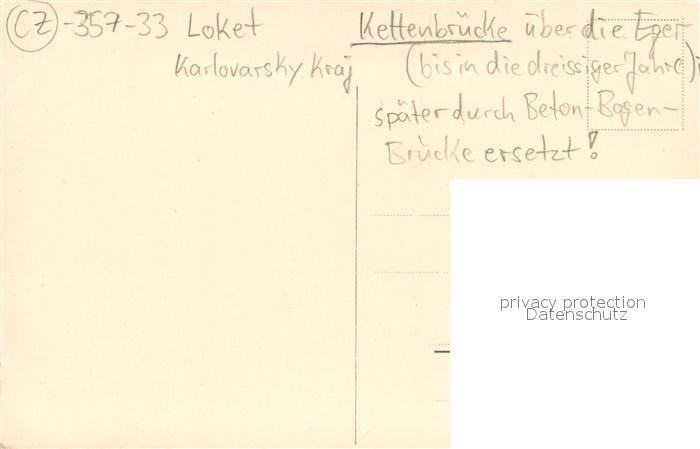 CZ-357-33 Loket
Karlovarsky Kraj
Kettenbrücke über die Eger
(bis in die dreissiger Jahre)
später durch Beton-Bogen-
Brücke ersetzt!
privacy protection
Datenschutz